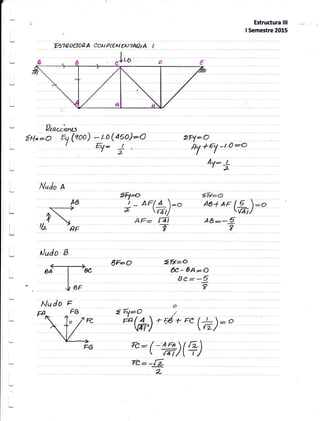 Estructura III
I Semestre 2015
ESTRUCTURA COMPLEMENTARIA I
A B C D E
↓1.0
G H
Reacciones
ΣMA=0 Ey(900) -1.0(450)=0 ΣFy=0
Ey= 1/2 Ay+Ey-1.0=0
Ay= 1/2
Nudo A
ΣFy=0 ΣFx=0
AB 1/2 - AF(4/√41)=0 AB+AF(5/√41)=0
1/2 AF AF= √41/8 AB=-5/8
Nudo B
BF=0 ΣFx=0
BA BC BC-BA=0
BF BC=-5/8
Nudo F
FA FB FC ΣFy=0 0
FA(4/√41)+FB+FC(1/√2)=0
FG FC=(-4FA/√41)(√2/1)
FC=-√2/2